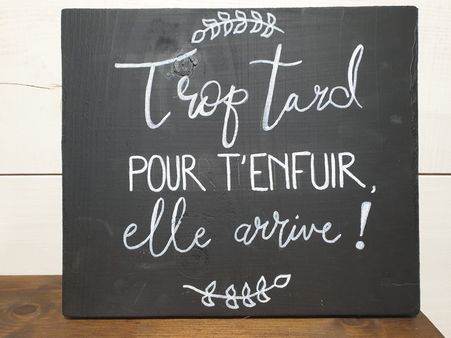 Trop tard
POUR T'ENFUIR,
elle arrive !